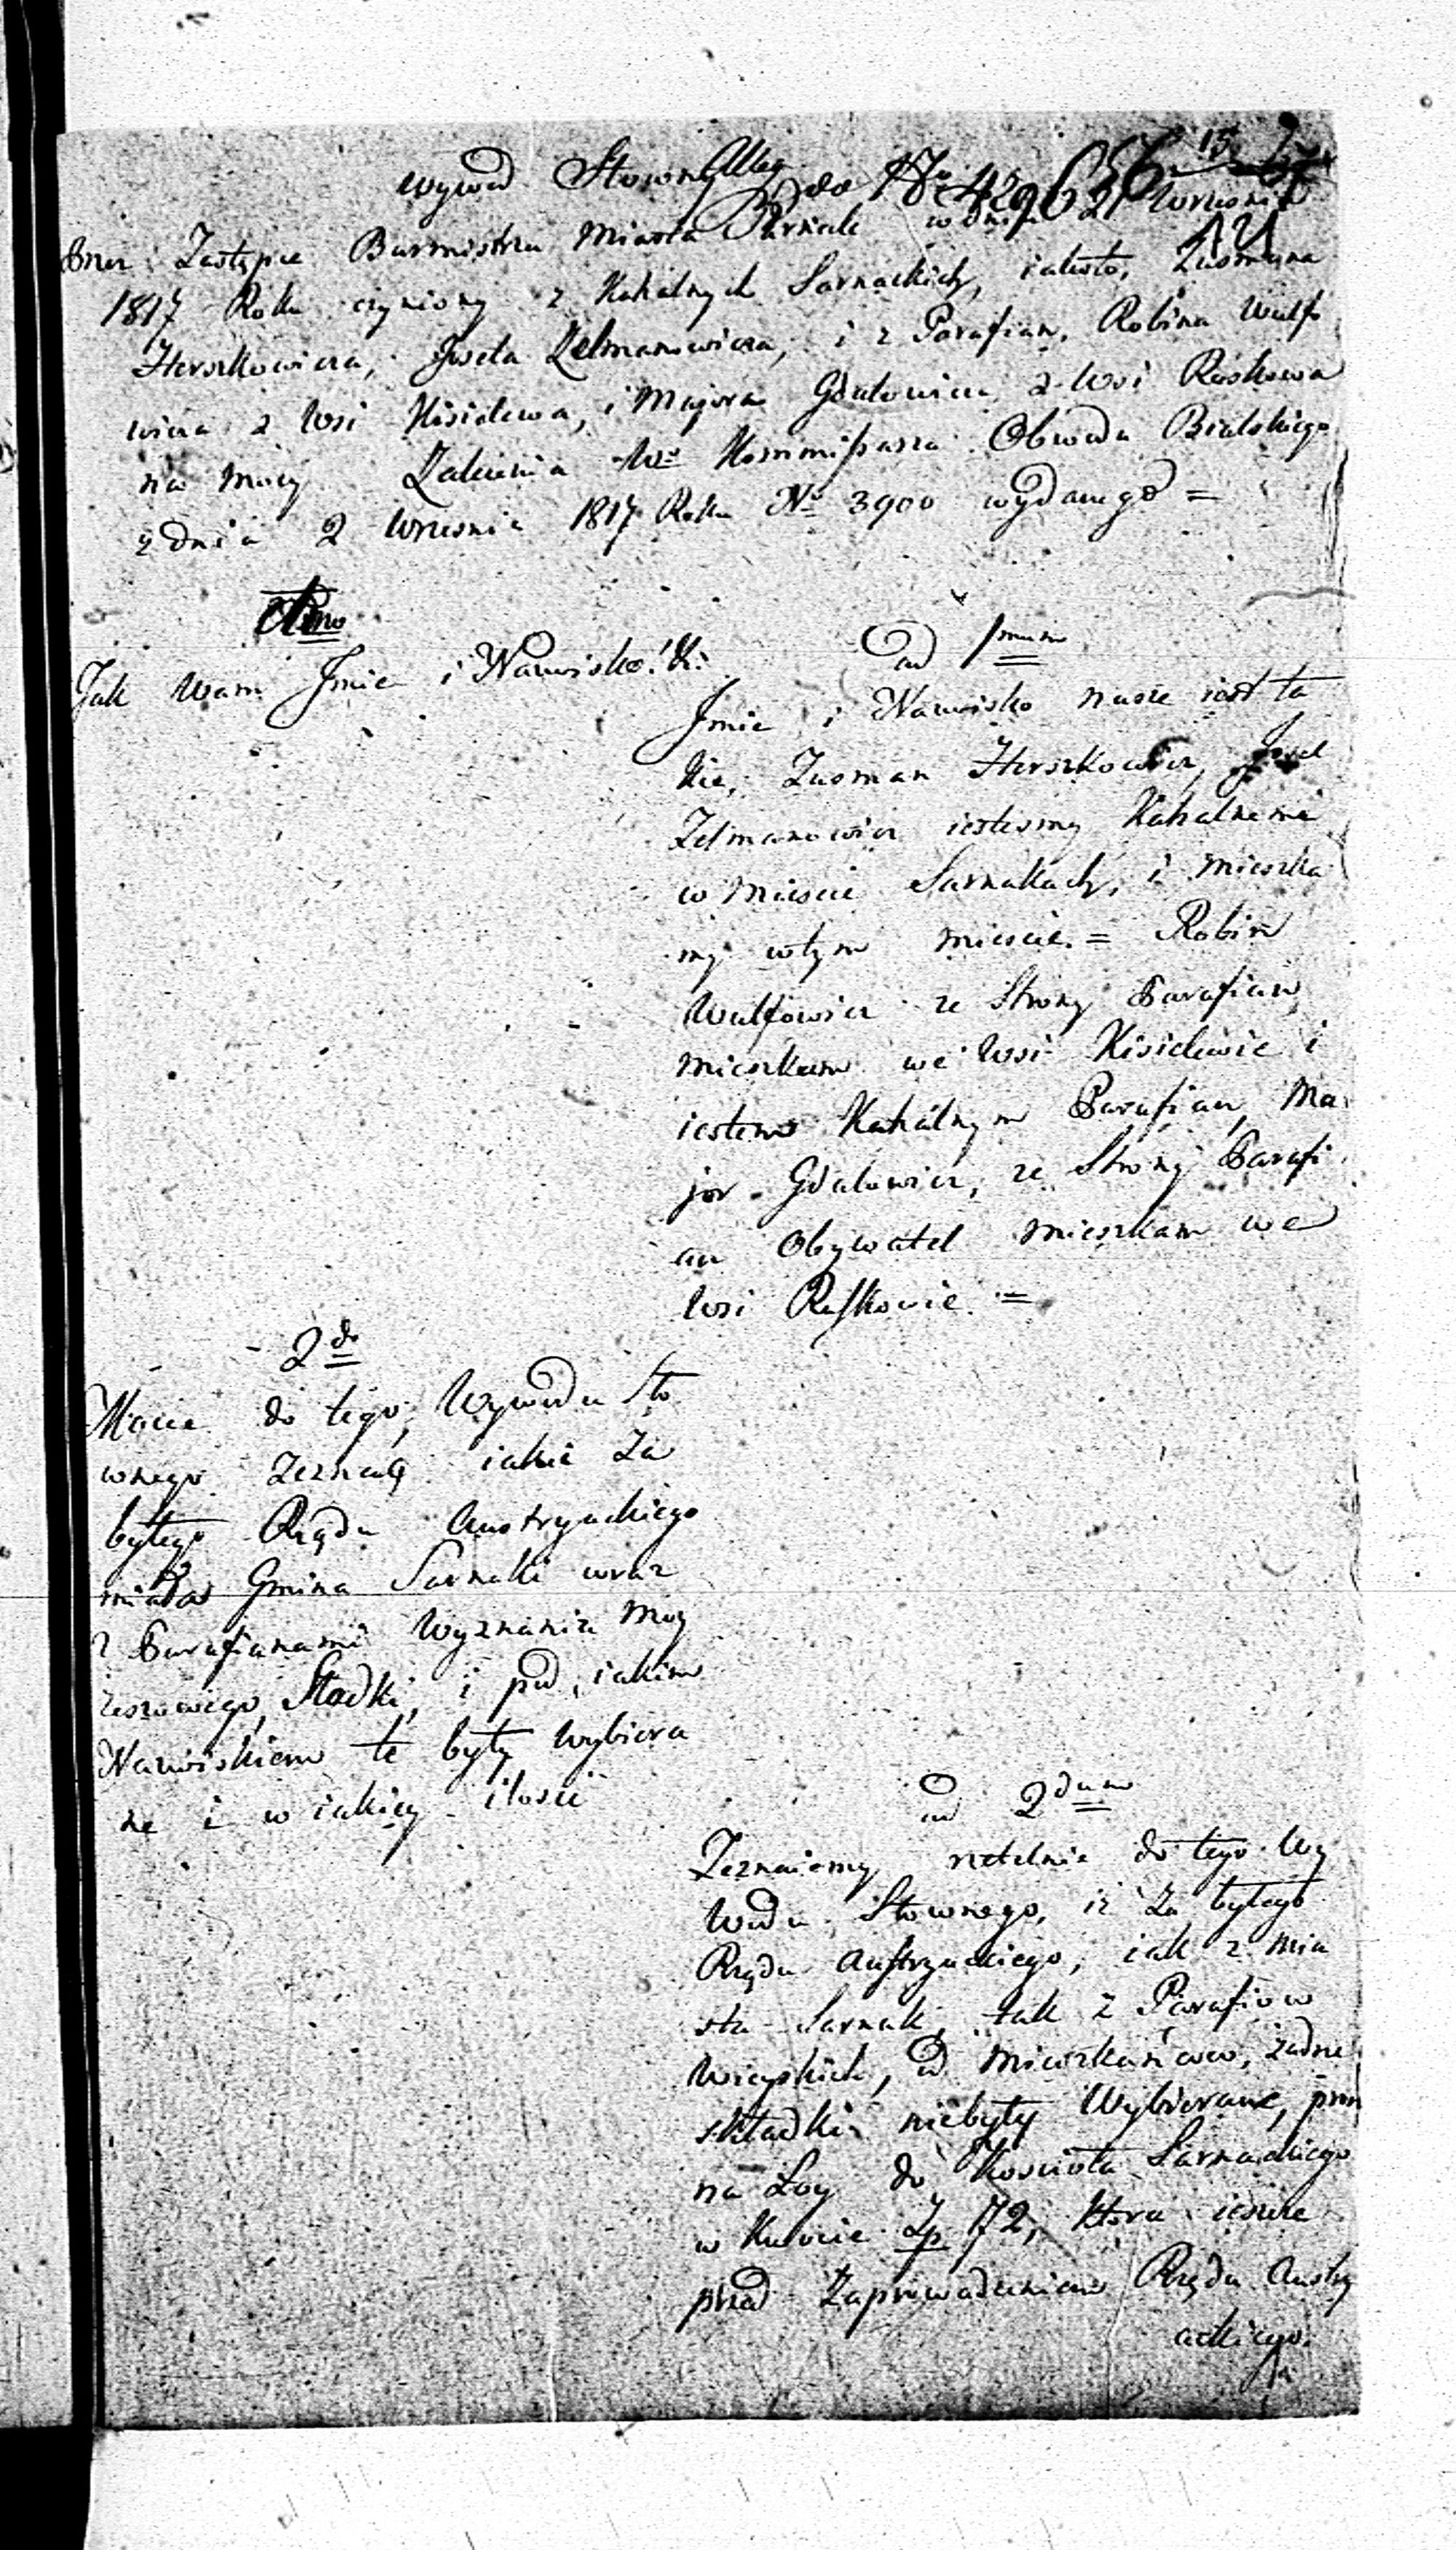 Wywod Słowny
do № 4296
15
Przez Zastępce Burmistrza Miasta Sarnak w dniu 21 Wrzesnia
1817 Roku czyniony z Kahalnych Sarnackich, iakoto, Zusmana
Herszkowicza, Josela Zelmanowicza, i z Parafian, Robina Wulfo
wicza z Wsi Kisielewa, i Majora Gdalowicza z Wsi Ruskowa
na mocy Zalecenia W° Kommissarza Obwodu Bialskiego
z dnia 2 Wrzesnia 1817 Roku № 3900 wydanego =
1mo
Jak Wam Jmie i Nazwisko?
ad 1mum
Jmie i Nazwisko nasze iest ta
kie, Zusman Herszkowicz, Josel
Zelmanowicz iestesmy Kahalnemi
w Miescie Sarnakach, i mieszka
my wtym miescie. = Robin
Wulfowicz ze Strony Parafian
mieszkam we Wsi Kisielewie i
iestem Kahalnym Parafian, Ma
jor Gdalowicz, ze Strony Parafi
an Obywatel mieszkam we
Wsi Ruskowie. =
2do
Macie do tego, Wywodu Sło
wnego Zeznać iakie Za
byłego Rządu Austryackiego
miała Gmina Sarnaki wraz
z Parafianami Wyznania Moy
zeszowego, Składki, i pod iakim
Nazwiskiem te były wybiera
ne i w iakiey ilosci
ad 2dum
Zeznaiemy rzetelnie do tego Wy
wodu Słownego, iż Za byłego
Rządu Austryackiego, iak z mia
sta Sarnak, tak z Parafiow
Wieyskich, od Mieszkańcow, żadne
składki niebyły Wybierane, procz
na Łoy do Koscioła Sarnackiego
w Kwocie Zp 72, ktora ieszcze
przed Zaprowadzeniem Rządu Austry
ackiego.